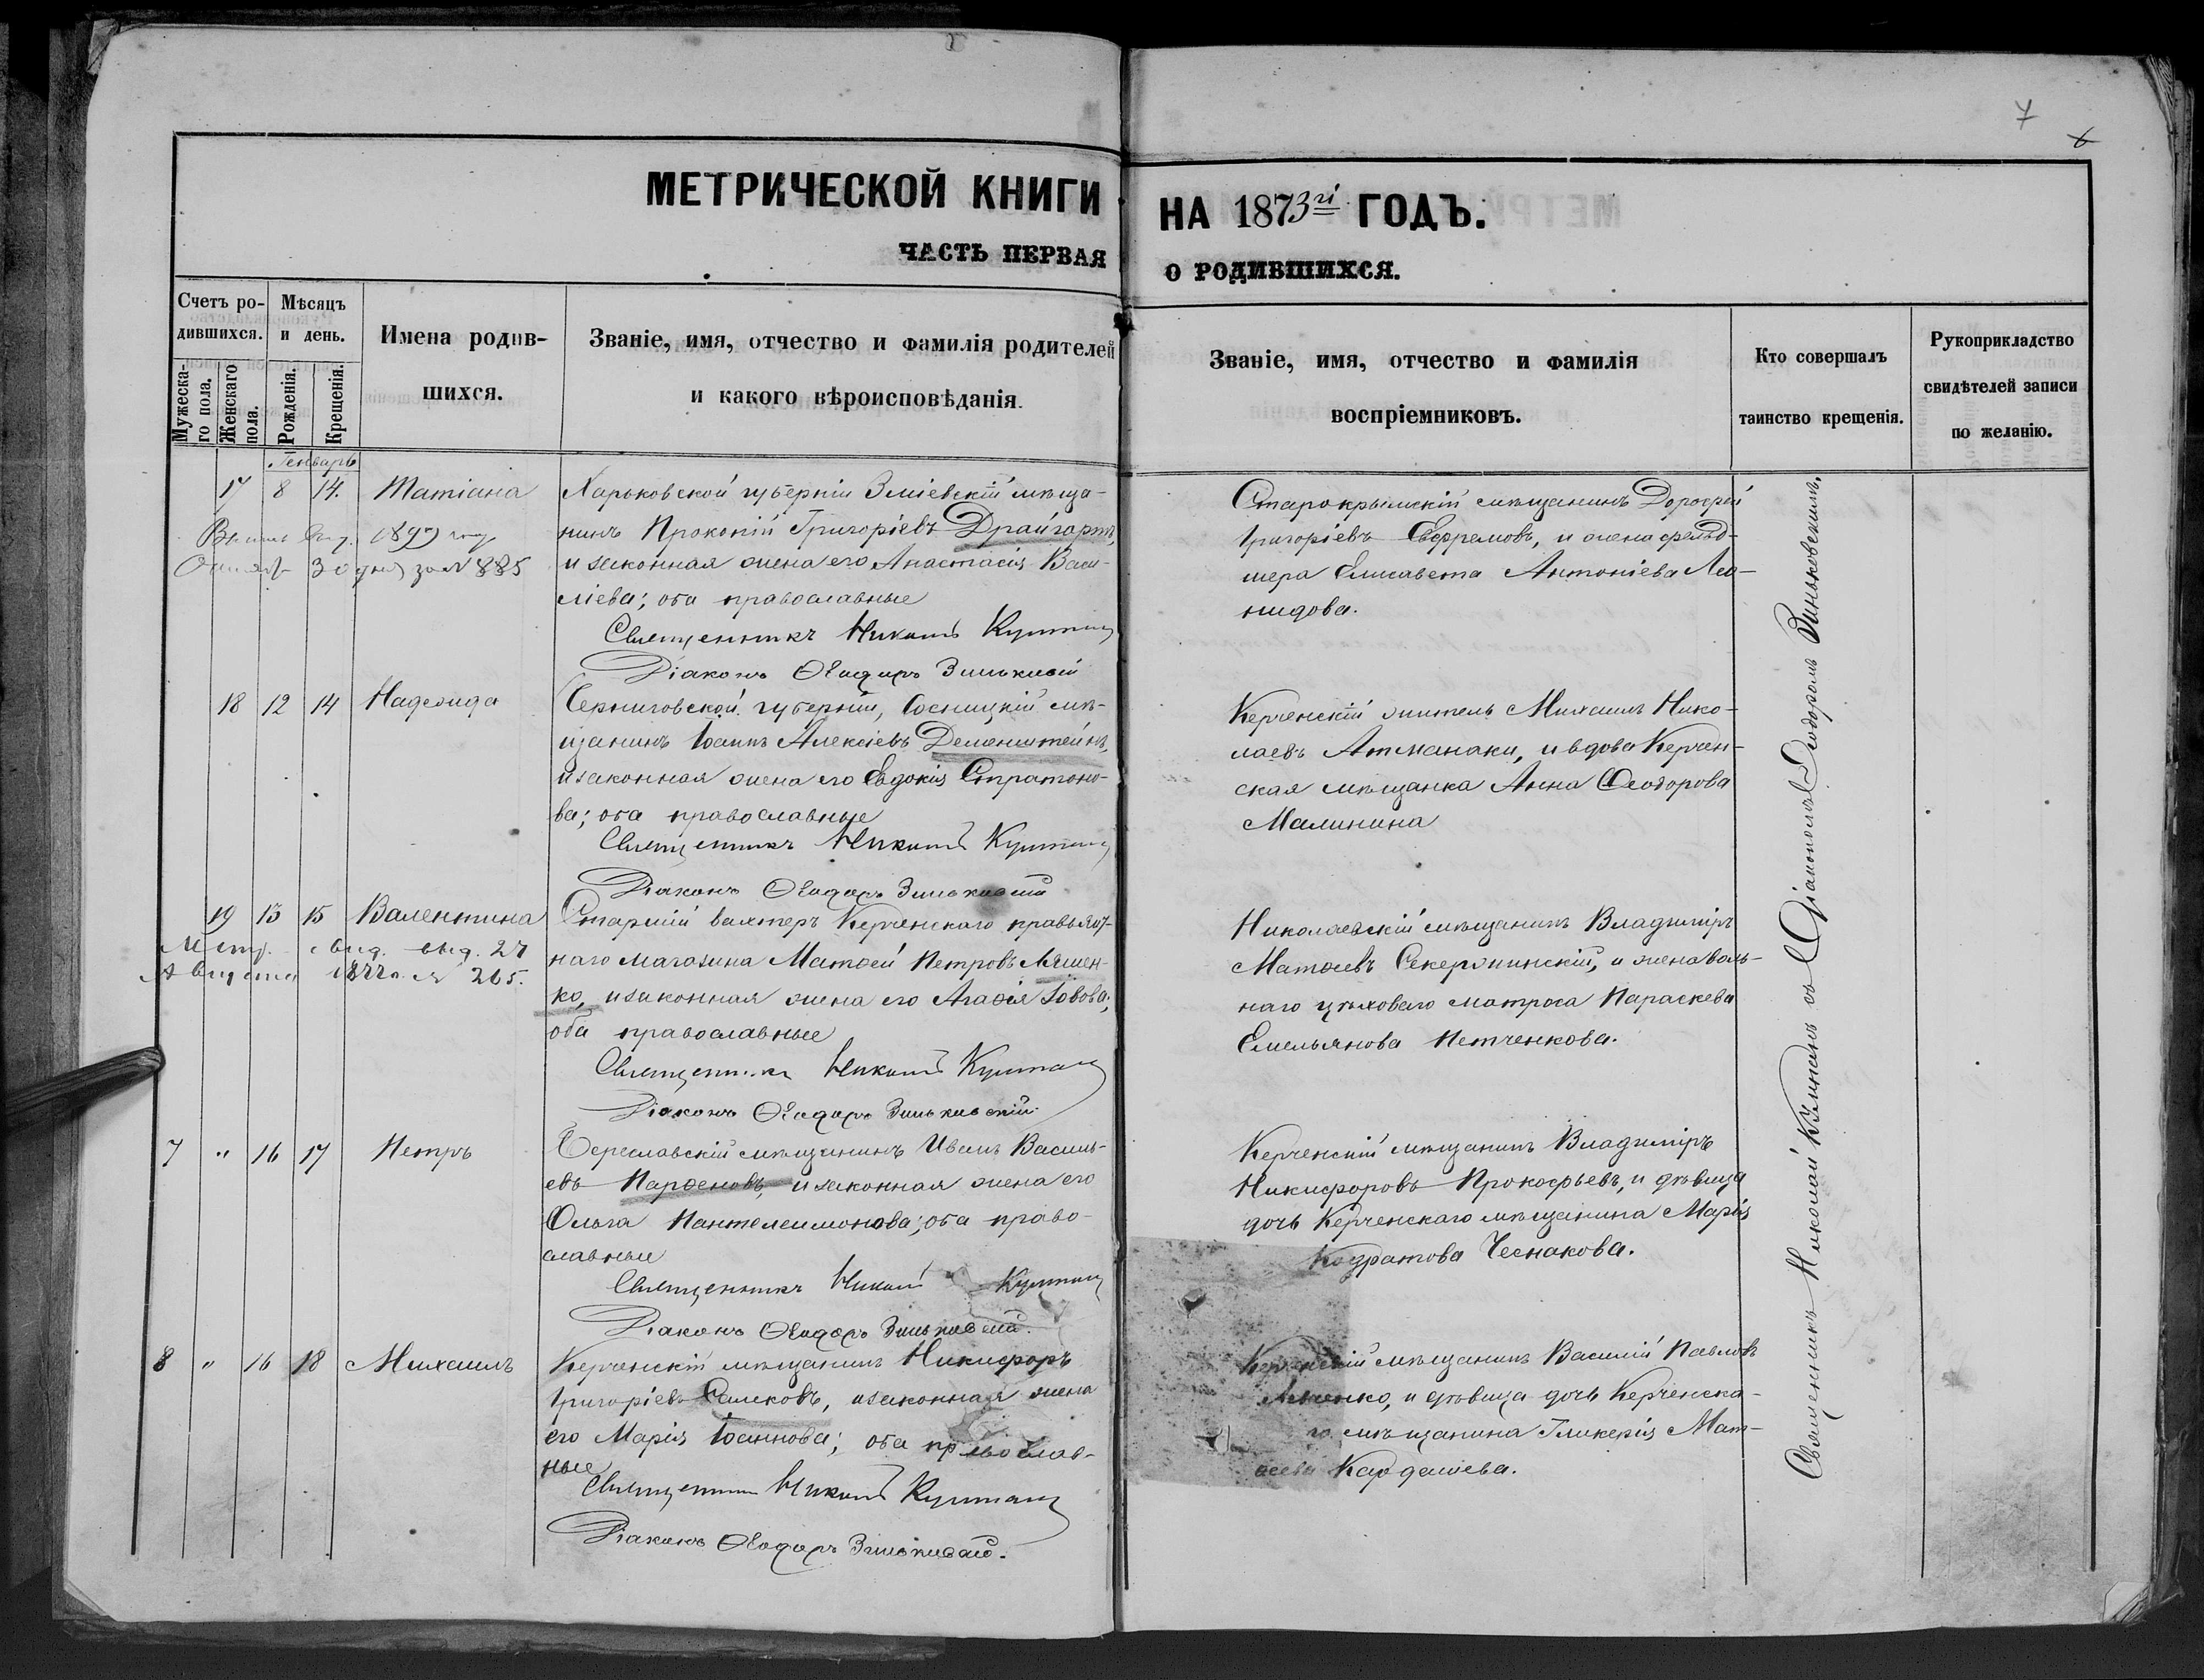 7
6
МЕТРИЧЕСКОЙ КНИГИ НА 1873й ГОДЪ.
ЧАСТЬ ПЕРВАЯ О РОДИВШИХСЯ.
Счетъ ро-
дившихся.
Мужеска-
го пола.
Женскаго
пола.
Мѣсяцъ
и день.
Рожденія.
Крещенія.
Имена родив-
шихся.
Званіе, имя, отчество и фамилія родителей
и какого вѣроисповѣданія.
Званіе, имя, отчество и фамилія
воспріемниковъ.
Кто совершалъ
таинство крещенія.
Рукоприкладство
свидѣтелей записи
по желанію.
Генварь
17 8 14. Татіана
Харьковской губерніи Зміевскій мѣща-
нинъ Прокопій Григоріевъ Драйгортъ,
и законная жена его Анастасія Васи-
ліева; оба православные
Священникъ Никол
Діаконъ Ѳеодоръ Зиньковскій
1897 году
30 дня за № 885
Старокрымскій мѣщанинъ Дорофей
Григоріевъ Ефремовъ, и жена фельд-
шера Елисавета Антоніева Лео-
нидова.
18 12 14 Надежда
Черниговской губерніи, Сосницкій мѣ-
щанинъ Іоаннъ Алексіевъ Деменштейнъ,
и законная жена его Евдокія Стратоно-
ва; оба православные
Священникъ Никол
Діаконъ Ѳеодоръ Зиньковскій
Керченскій житель Михаилъ Нико-
лаевъ Атманаки, и вдова Керчен-
ская мѣщанка Анна Ѳеодорова
Малинина
19 13 15 Валентина
Метр. свид. выд. 27
Августа 1877 г. № 265.
Старшій вахтеръ Керченскаго провіянт-
наго магазина Матѳей Петровъ Ляшен-
ко, и законная жена его Агаѳія Іовова;
оба православные
Священникъ Никол
Діаконъ Ѳеодоръ Зиньковскій
Николаевскій мѣщанинъ Владиміръ
Матѳеевъ Секержинскій, и жена воль-
наго цѣховаго матроса Параскева
Емельянова Петченкова.
7 " 16 17 Петръ
Береславскій мѣщанинъ Иванъ Василь-
евъ Парѳеновъ, и законная жена его
Ольга Пантелеимонова; оба право-
славные
Священникъ Никол
Діаконъ Ѳеодоръ Зиньковскій.
Керченскій мѣщанинъ Владиміръ
Никифоровъ Прокофьевъ, и дѣвица
дочь Керченскаго мѣщанина Марія
Кодратова Чеснакова.
8 " 16 18 Михаилъ
Керченскій мѣщанинъ Никифоръ
Григоріевъ Салековъ, и законная жена
его Марія Іоаннова; оба православ-
ные
Священникъ Никол
Діаконъ Ѳеодоръ Зиньковскій.
Керченскій мѣщанинъ Василій Павловъ
и дѣвица дочь Керченска-
го мѣщанина Гликерія Мат-
ѳеева Кардашева.
Священникъ Николай съ Діакономъ Ѳеодоромъ Зиньковскимъ.